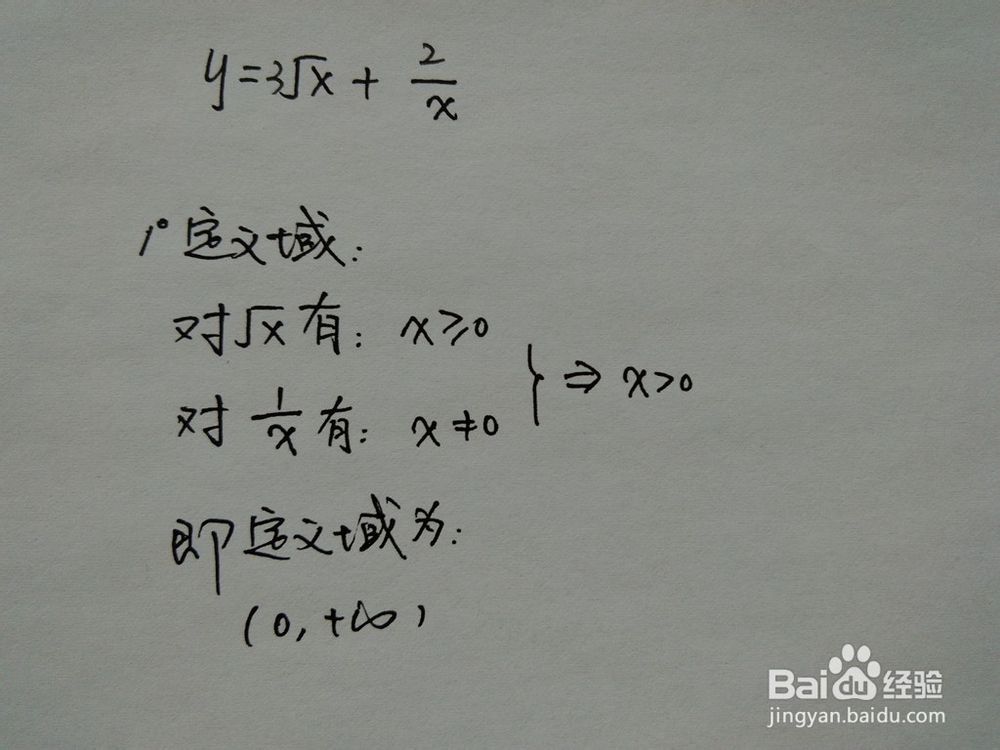 y=3√x + 2/x
1° 定义域:
对√x 有: x≥0
对 1/x 有: x≠0
} ⇒ x>0
即定义域为:
(0,+∞)
Baidu经验
jingyan.baidu.com